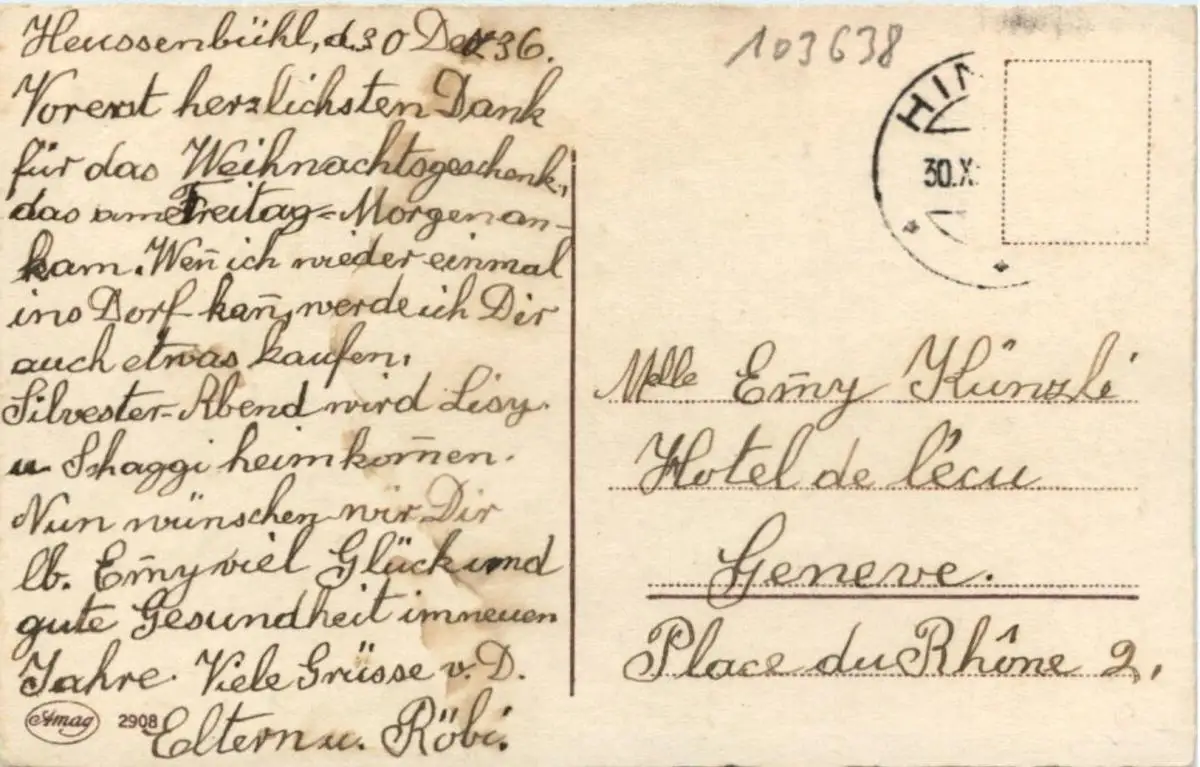 Heussenbühl, d. 30 Dez 36.
Vorerst herzlichsten Dank
für das Weihnachtsgeschenk,
das am Freitag-Morgen an-
kam. Weñ ich wieder einmal
ins Dorf kañ, werde ich Dir
auch etwas kaufen.
Silvester-Abend wird Lisy
u Schaggi heimkom̄en.
Nun wünschen wir Dir
lb. Em̄y viel Glück und
gute Gesundheit im neuen
Jahre. Viele Grüsse v. D.
Eltern u. Röbi.
Amag 2908
103638
HIN
30.X
Melle Em̄y Künzli
Hotel de l'écu
Geneve.
Place du Rhône 2.